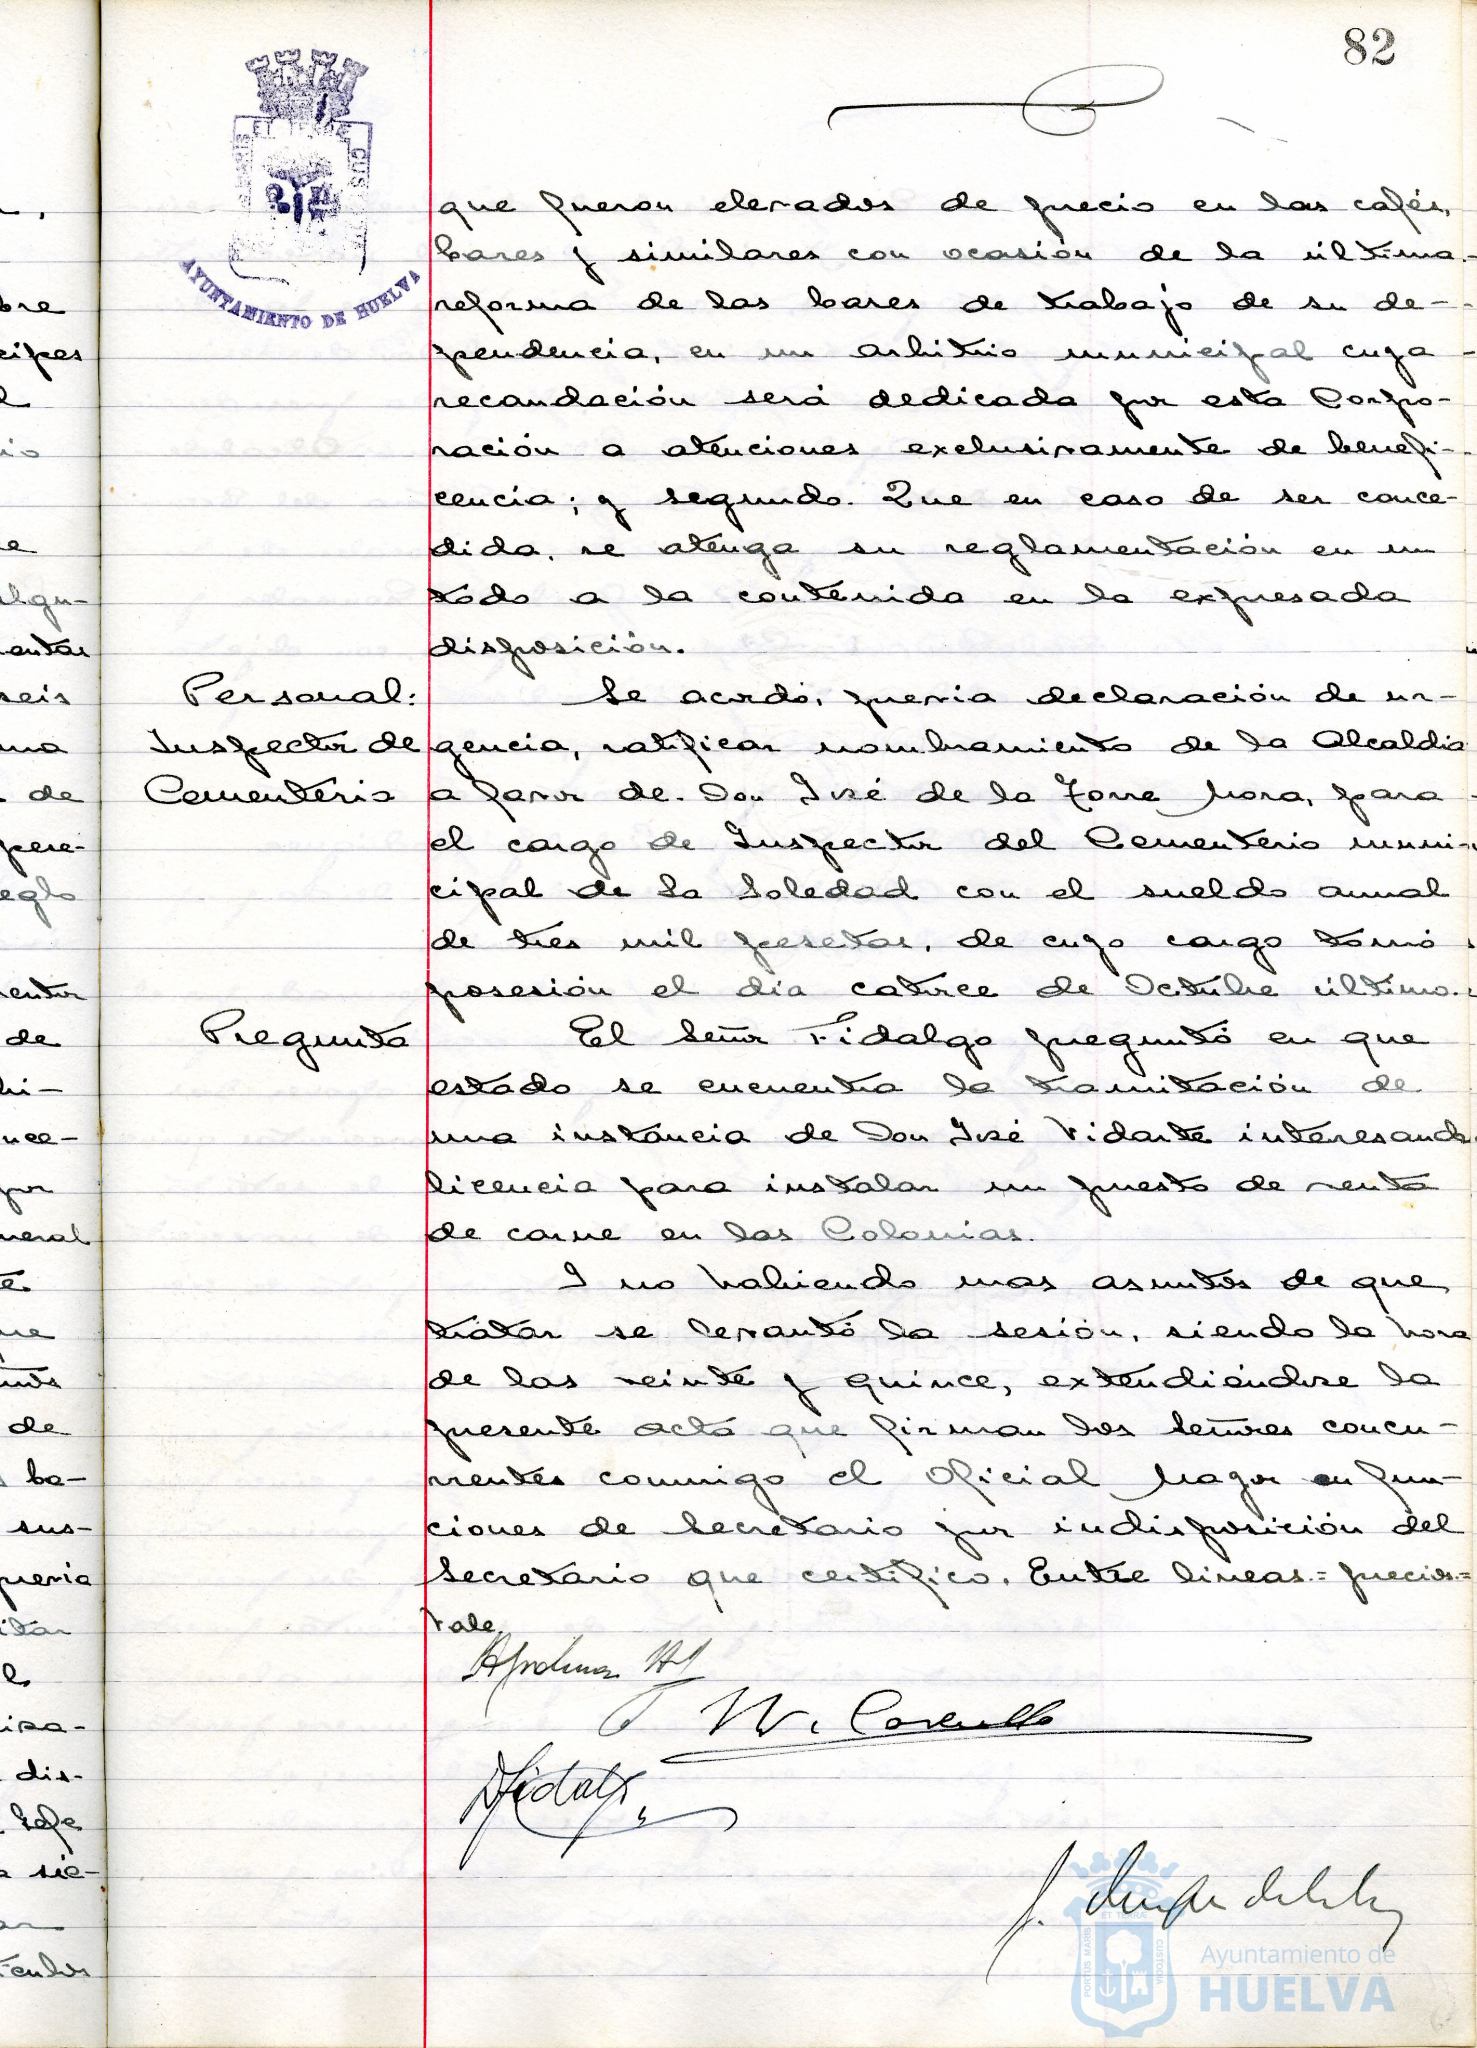 82
AYUNTAMIENTO DE HUELVA
que fueron elevados de precio en los cafés,
bares y similares con ocasión de la última
reforma de las bases de trabajo de su de-
pendencia, en un arbitrio municipal cuya
recaudación será dedicada por esta Corpo-
ración a atenciones exclusivamente de benefi-
cencia; y segundo. Que en caso de ser conce-
dida, se atenga su reglamentación en un
todo a la contenida en la expresada
disposición.
Personal:
Inspector de
Cementerio
Se acordó, previa declaración de ur-
gencia, ratificar nombramiento de la Alcaldia
a favor de Don José de la Torre Mora, para
el cargo de Inspector del Cementerio muni-
cipal de la Soledad con el sueldo anual
de tres mil pesetas, de cuyo cargo tomó
posesión el dia catorce de Octubre último.
Pregunta
El Señor Fidalgo preguntó en que
estado se encuentra la tramitación de
una instancia de Don José Vidarte interesando
licencia para instalar un puesto de venta
de carne en las Colonias.
I no habiendo mas asuntos de que
tratar se levantó la sesión, siendo la hora
de las veinte y quince, extendiéndose la
presente acta que firman los señores concu-
rrentes conmigo el Oficial Mayor en fun-
ciones de Secretario por indisposición del
Secretario que certifico. Entre lineas.= precios.=
Vale.
Ayuntamiento de
HUELVA